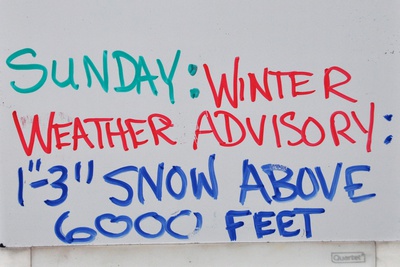 SUNDAY: WINTER
WEATHER ADVISORY:
1"-3" SNOW ABOVE
6000 FEET
Quartet